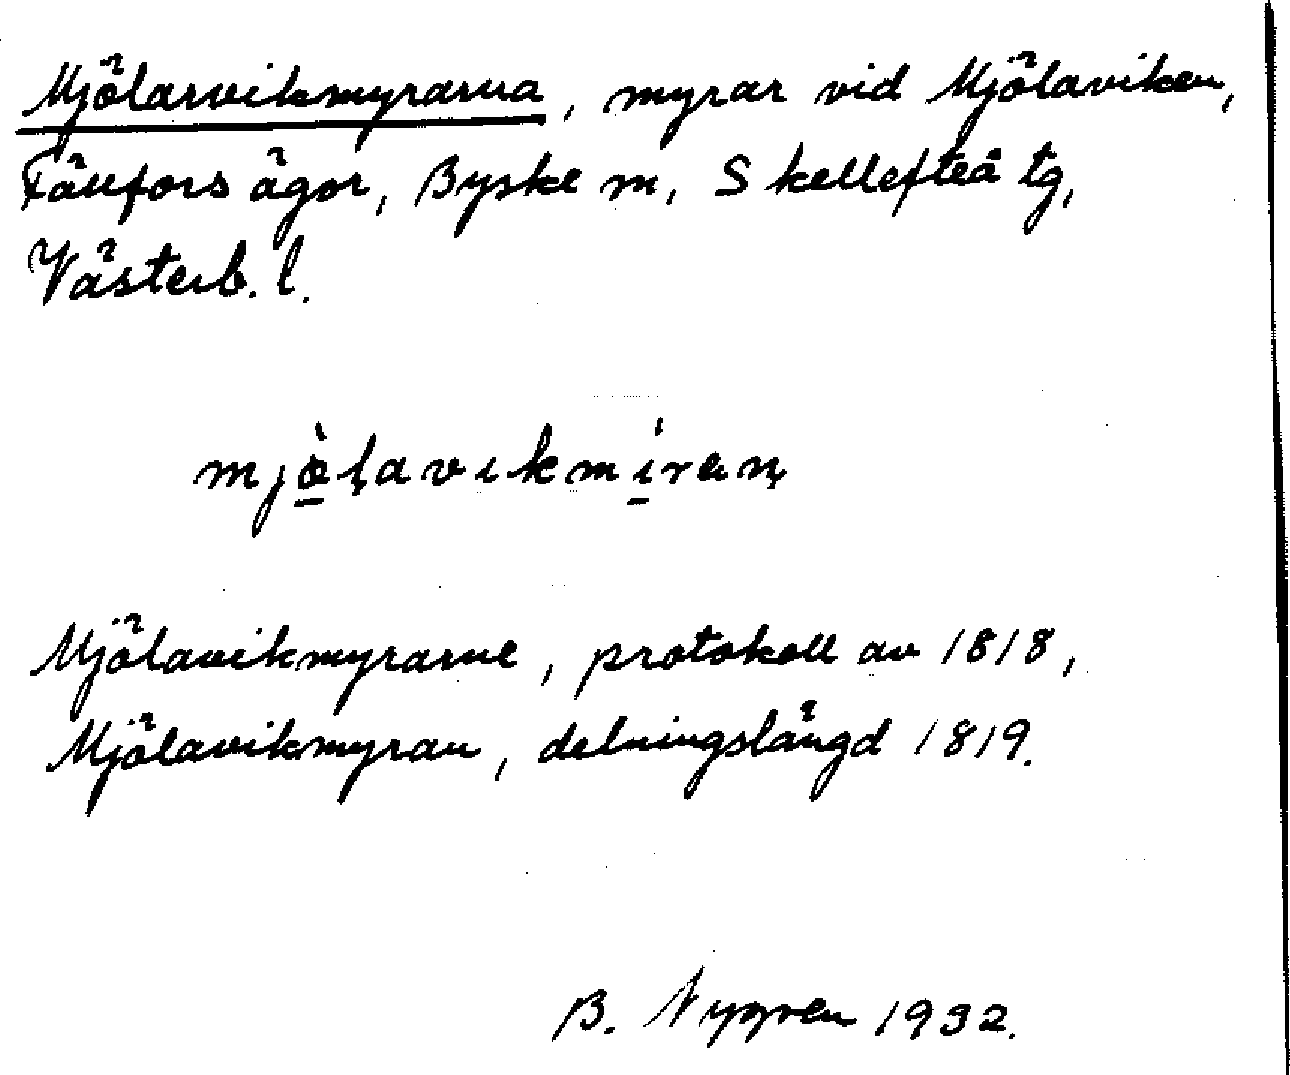 Mjölarvikmyrarna, myrar vid Mjölaviken,
Fällfors ägor, Byske m, Skellefteå tg,
Västerb. l.
mjö̱̀ḷavıkmı̱̀raṇ
Mjölavikmyrarne, protokoll av 1818,
Mjölavikmyran, delningslängd 1819.
B. Nygren 1932.